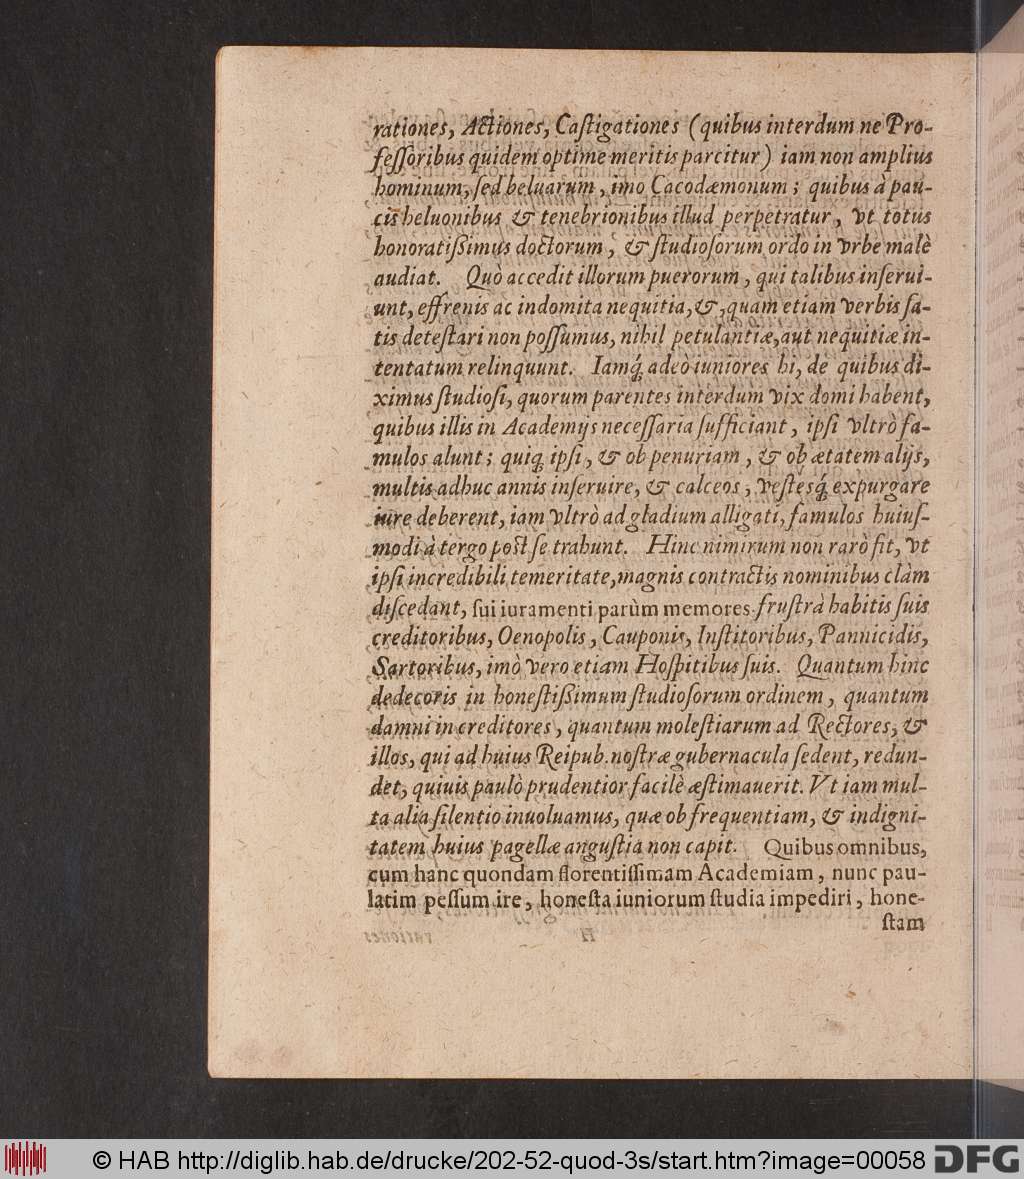 rationes, Actiones, Caſtigationes (quibus interdum ne Pro-
feſſoribus quidem optime meritis parcitur) iam non amplius
hominum, ſed beluarum, imo Cacodæmonum; quibus à pau-
cis heluonibus & tenebrionibus illud perpetratur, vt totus
honoratiſsimus doctorum, & ſtudioſorum ordo in vrbe malè
audiat. Quò accedit illorum puerorum, qui talibus inſerui-
unt, effrenis ac indomita nequitia, &, quam etiam verbis ſa-
tis deteſtari non poſſumus, nihil petulantiæ, aut nequitiæ in-
tentatum relinquunt. Iamq́; adeò iuniores hi, de quibus di-
ximus ſtudioſi, quorum parentes interdum vix domi habent,
quibus illis in Academijs neceſſaria ſufficiant, ipſi vltrò fa-
mulos alunt; quiq; ipſi, & ob penuriam, & ob ætatem alijs,
multis adhuc annis inſeruire, & calceos, veſtesq́; expurgare
iure deberent, iam vltrò ad gladium alligati, famulos huiuſ-
modi à tergo poſt ſe trahunt. Hinc nimirum non rarò fit, vt
ipſi incredibili temeritate, magnis contractis nominibus clàm
diſcedant, ſui iuramenti parùm memores fruſtrà habitis ſuis
creditoribus, Oenopolis, Cauponis, Inſtitoribus, Pannicidis,
Sartoribus, imò vero etiam Hoſpitibus ſuis. Quantum hinc
dedecoris in honeſtiſsimum ſtudioſorum ordinem, quantum
damni in creditores, quantum moleſtiarum ad Rectores, &
illos, qui ad huius Reipub. noſtræ gubernacula ſedent, redun-
det, quiuis paulò prudentior facilè æſtimauerit. Vt iam mul-
ta alia ſilentio inuoluamus, quæ ob frequentiam, & indigni-
tatem huius pagellæ anguſtia non capit. Quibus omnibus,
cum hanc quondam florentiſſimam Academiam, nunc pau-
latim peſſum ire, honeſta iuniorum ſtudia impediri, hone-
ſtam
© HAB http://diglib.hab.de/drucke/202-52-quod-3s/start.htm?image=00058
DFG